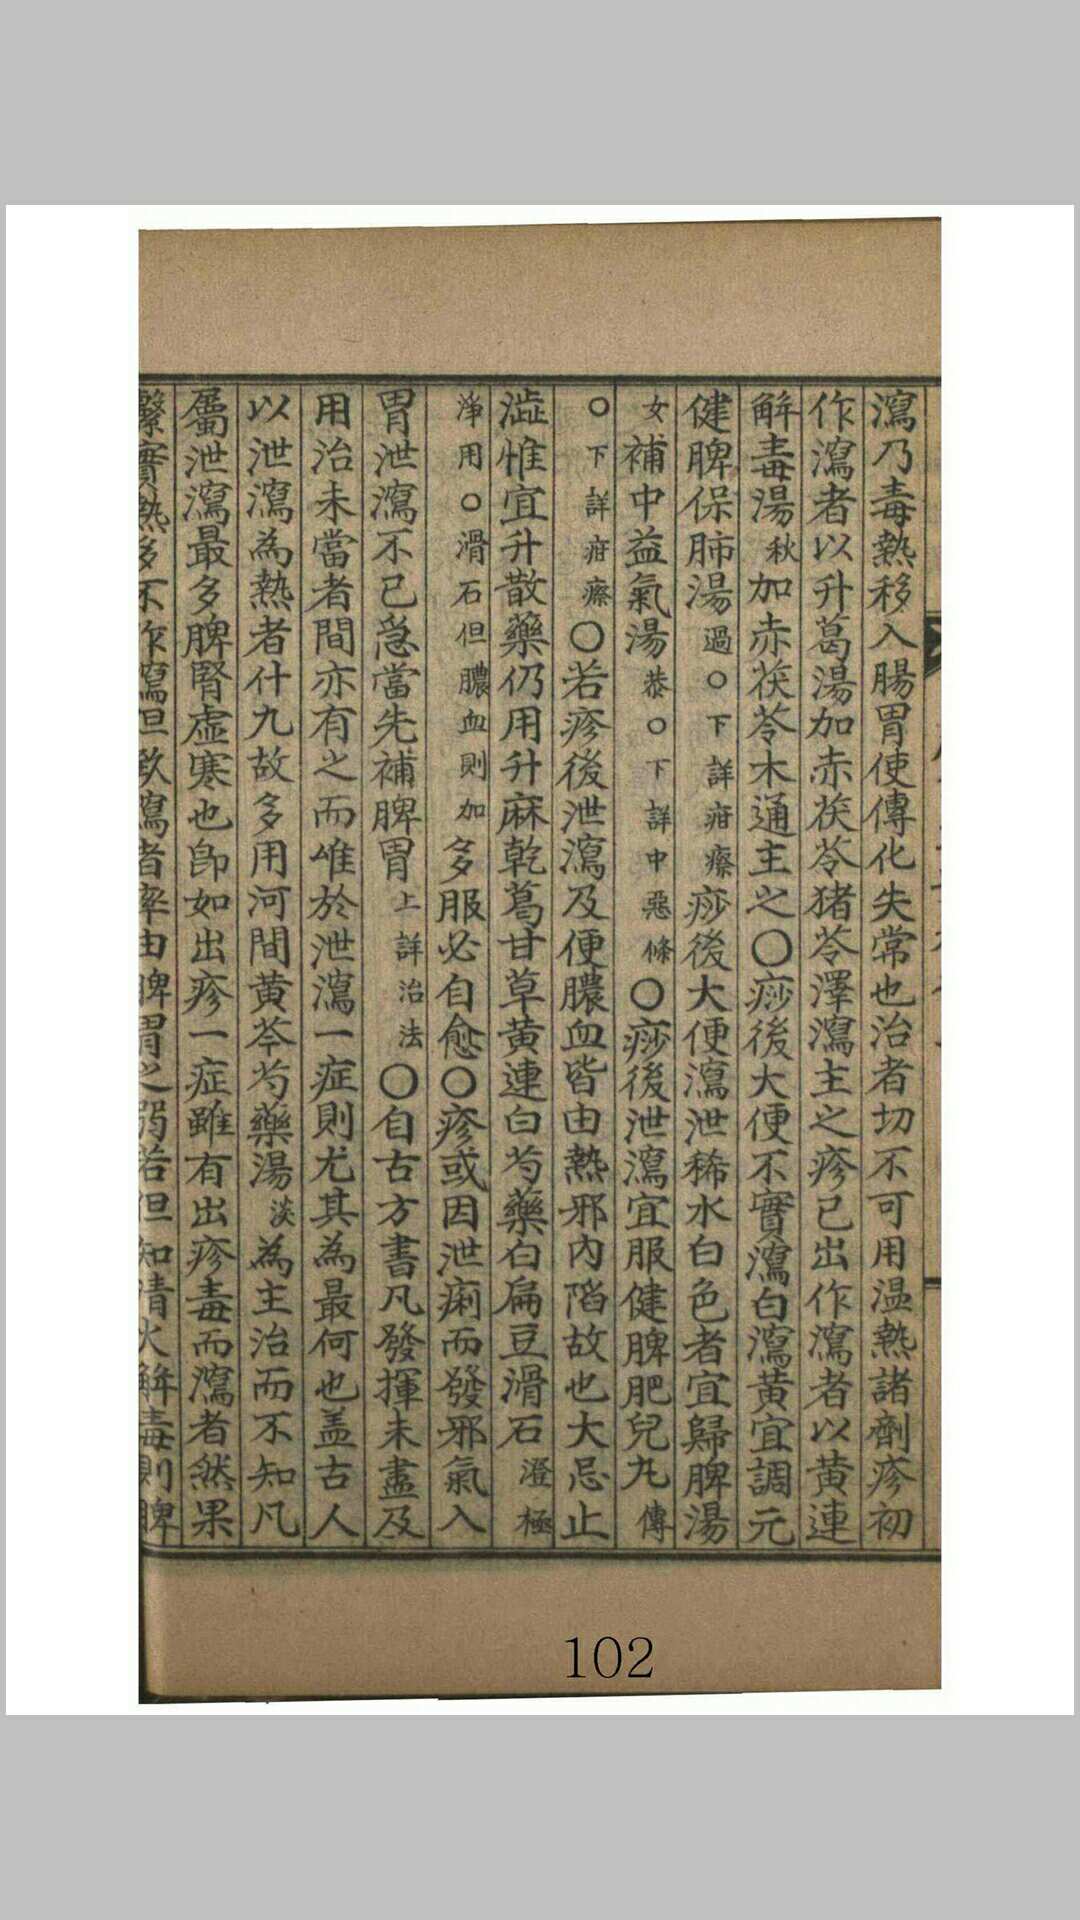 瀉乃毒熱移入腸胃使傳化失常也治者切不可用温熱諸劑疹初
作瀉者以升葛湯加赤茯苓猪苓澤瀉主之疹已出作瀉者以黄連
解毒湯秋加赤茯苓木通主之〇痧後大便不實瀉白瀉黄宜調元
健脾保肺湯過〇下詳疳瘵痧後大便瀉泄稀水白色者宜歸脾湯
女補中益氣湯恭〇下詳中惡條〇痧後泄瀉宜服健脾肥兒丸傳
〇下詳疳瘵〇若疹後泄瀉及便膿血皆由熱邪內陷故也大忌止
澁惟宜升散藥仍用升麻乾葛甘草黄連白芍藥白扁豆滑石澄極
淨用〇滑石但膿血則加多服必自愈〇疹或因泄痢而發邪氣入
胃泄瀉不已急當先補脾胃上詳治法〇自古方書凡發揮未盡及
用治未當者間亦有之而唯於泄瀉一症則尤其為最何也盖古人
以泄瀉為熱者什九故多用河間黄芩芍藥湯淡為主治而不知凡
屬泄瀉最多脾腎虛寒也卽如出疹一症雖有出疹毒而瀉者然果
繫實熱多不作瀉但致瀉者率由脾胃之弱若但知清火解毒則脾
102